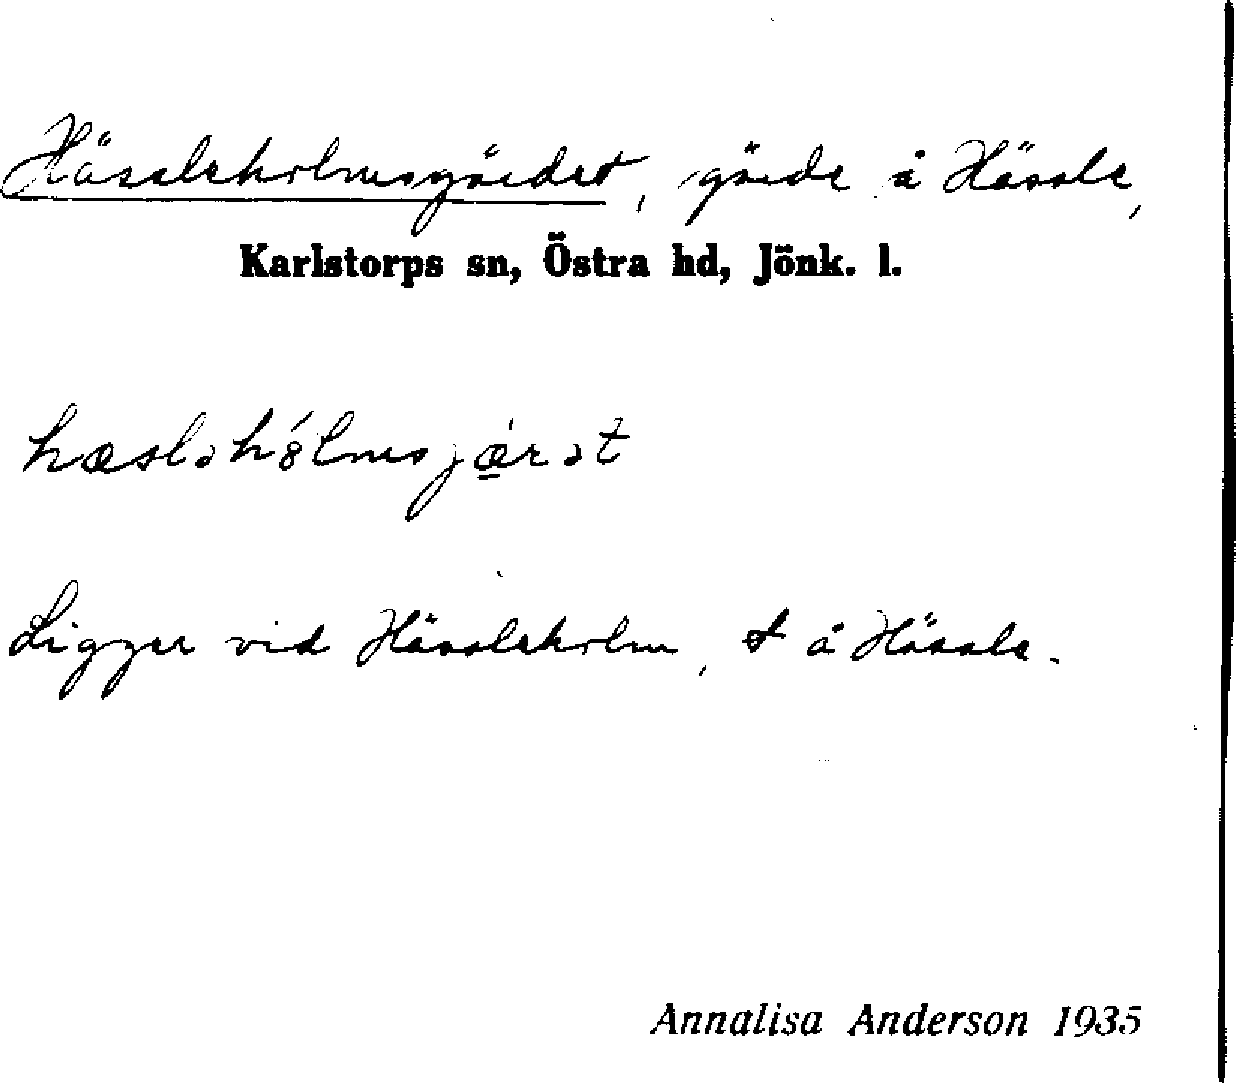 Hässleholmsgärdet, gärde å Hässle,
Karlstorps sn, Östra hd, Jönk. l.
hæsləhólmsjǽrət
Ligger vid Hässleholm, t å Hässle.
Annalisa Anderson 1935